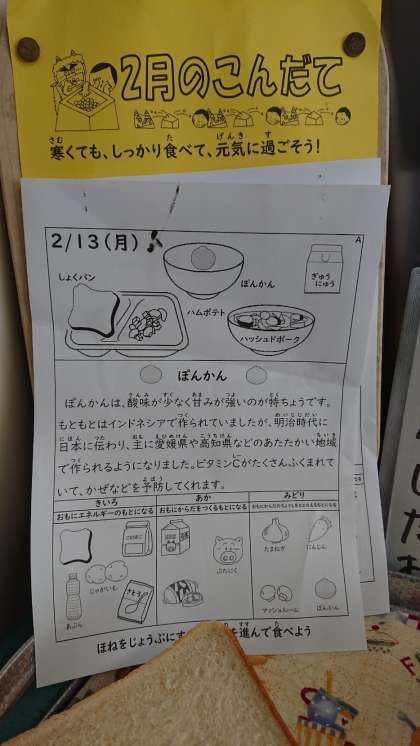 2月のこんだて
寒くても、しっかり食べて、元気に過ごそう!
2/13(月)
A
しょくパン
ぽんかん
ぎゅうにゅう
ハムポテト
ハッシュドポーク
ぽんかん
ぽんかんは、酸味が少なく甘みが強いのが特ちょうです。
もともとはインドネシアで作られていましたが、明治時代に
日本に伝わり、主に愛媛県や高知県などのあたたかい地域
で作られるようになりました。ビタミンCがたくさんふくまれて
いて、かぜなどを予防してくれます。
きいろ
おもにエネルギーのもとになる
あか
おもにからだをつくるもとになる
みどり
おもにからだのちょうしをととのえるもとになる
こむぎこ
じゃがいも
あぶら
さとう
ぶたにく
たまねぎ
にんじん
マッシュルーム
ぽんかん
ほねをじょうぶにす
を進んで食べよう